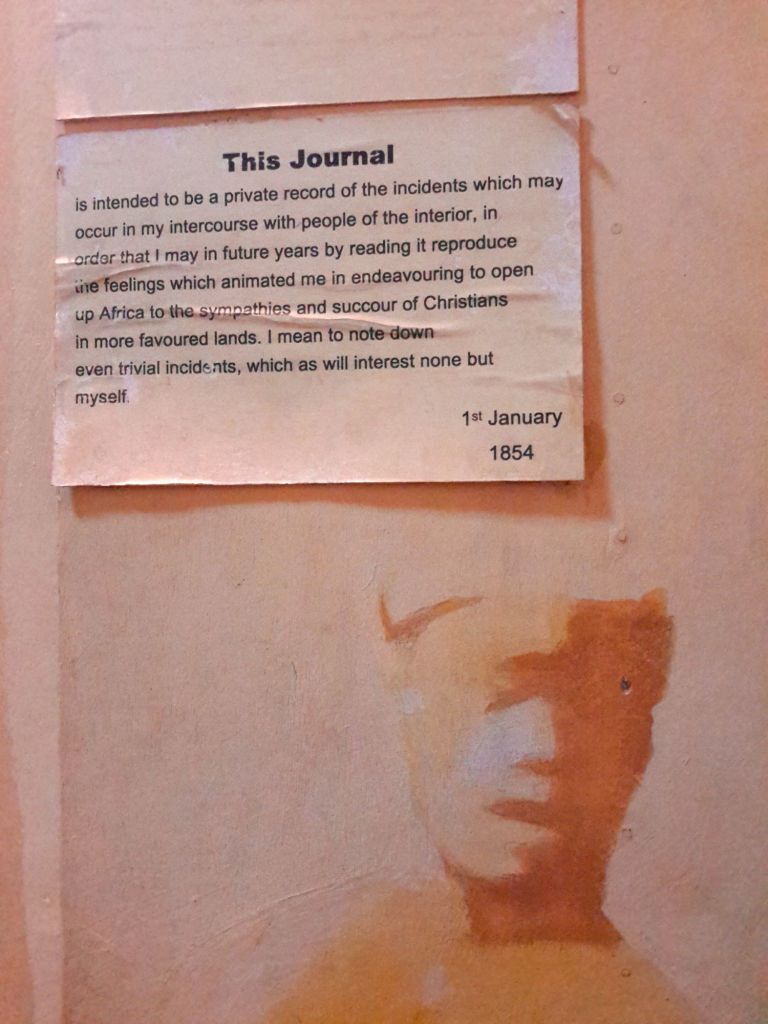 This Journal
is intended to be a private record of the incidents which may
occur in my intercourse with people of the interior, in
order that I may in future years by reading it reproduce
the feelings which animated me in endeavouring to open
up Africa to the sympathies and succour of Christians
in more favoured lands. I mean to note down
even trivial incidents, which as will interest none but
myself.
1st January
1854